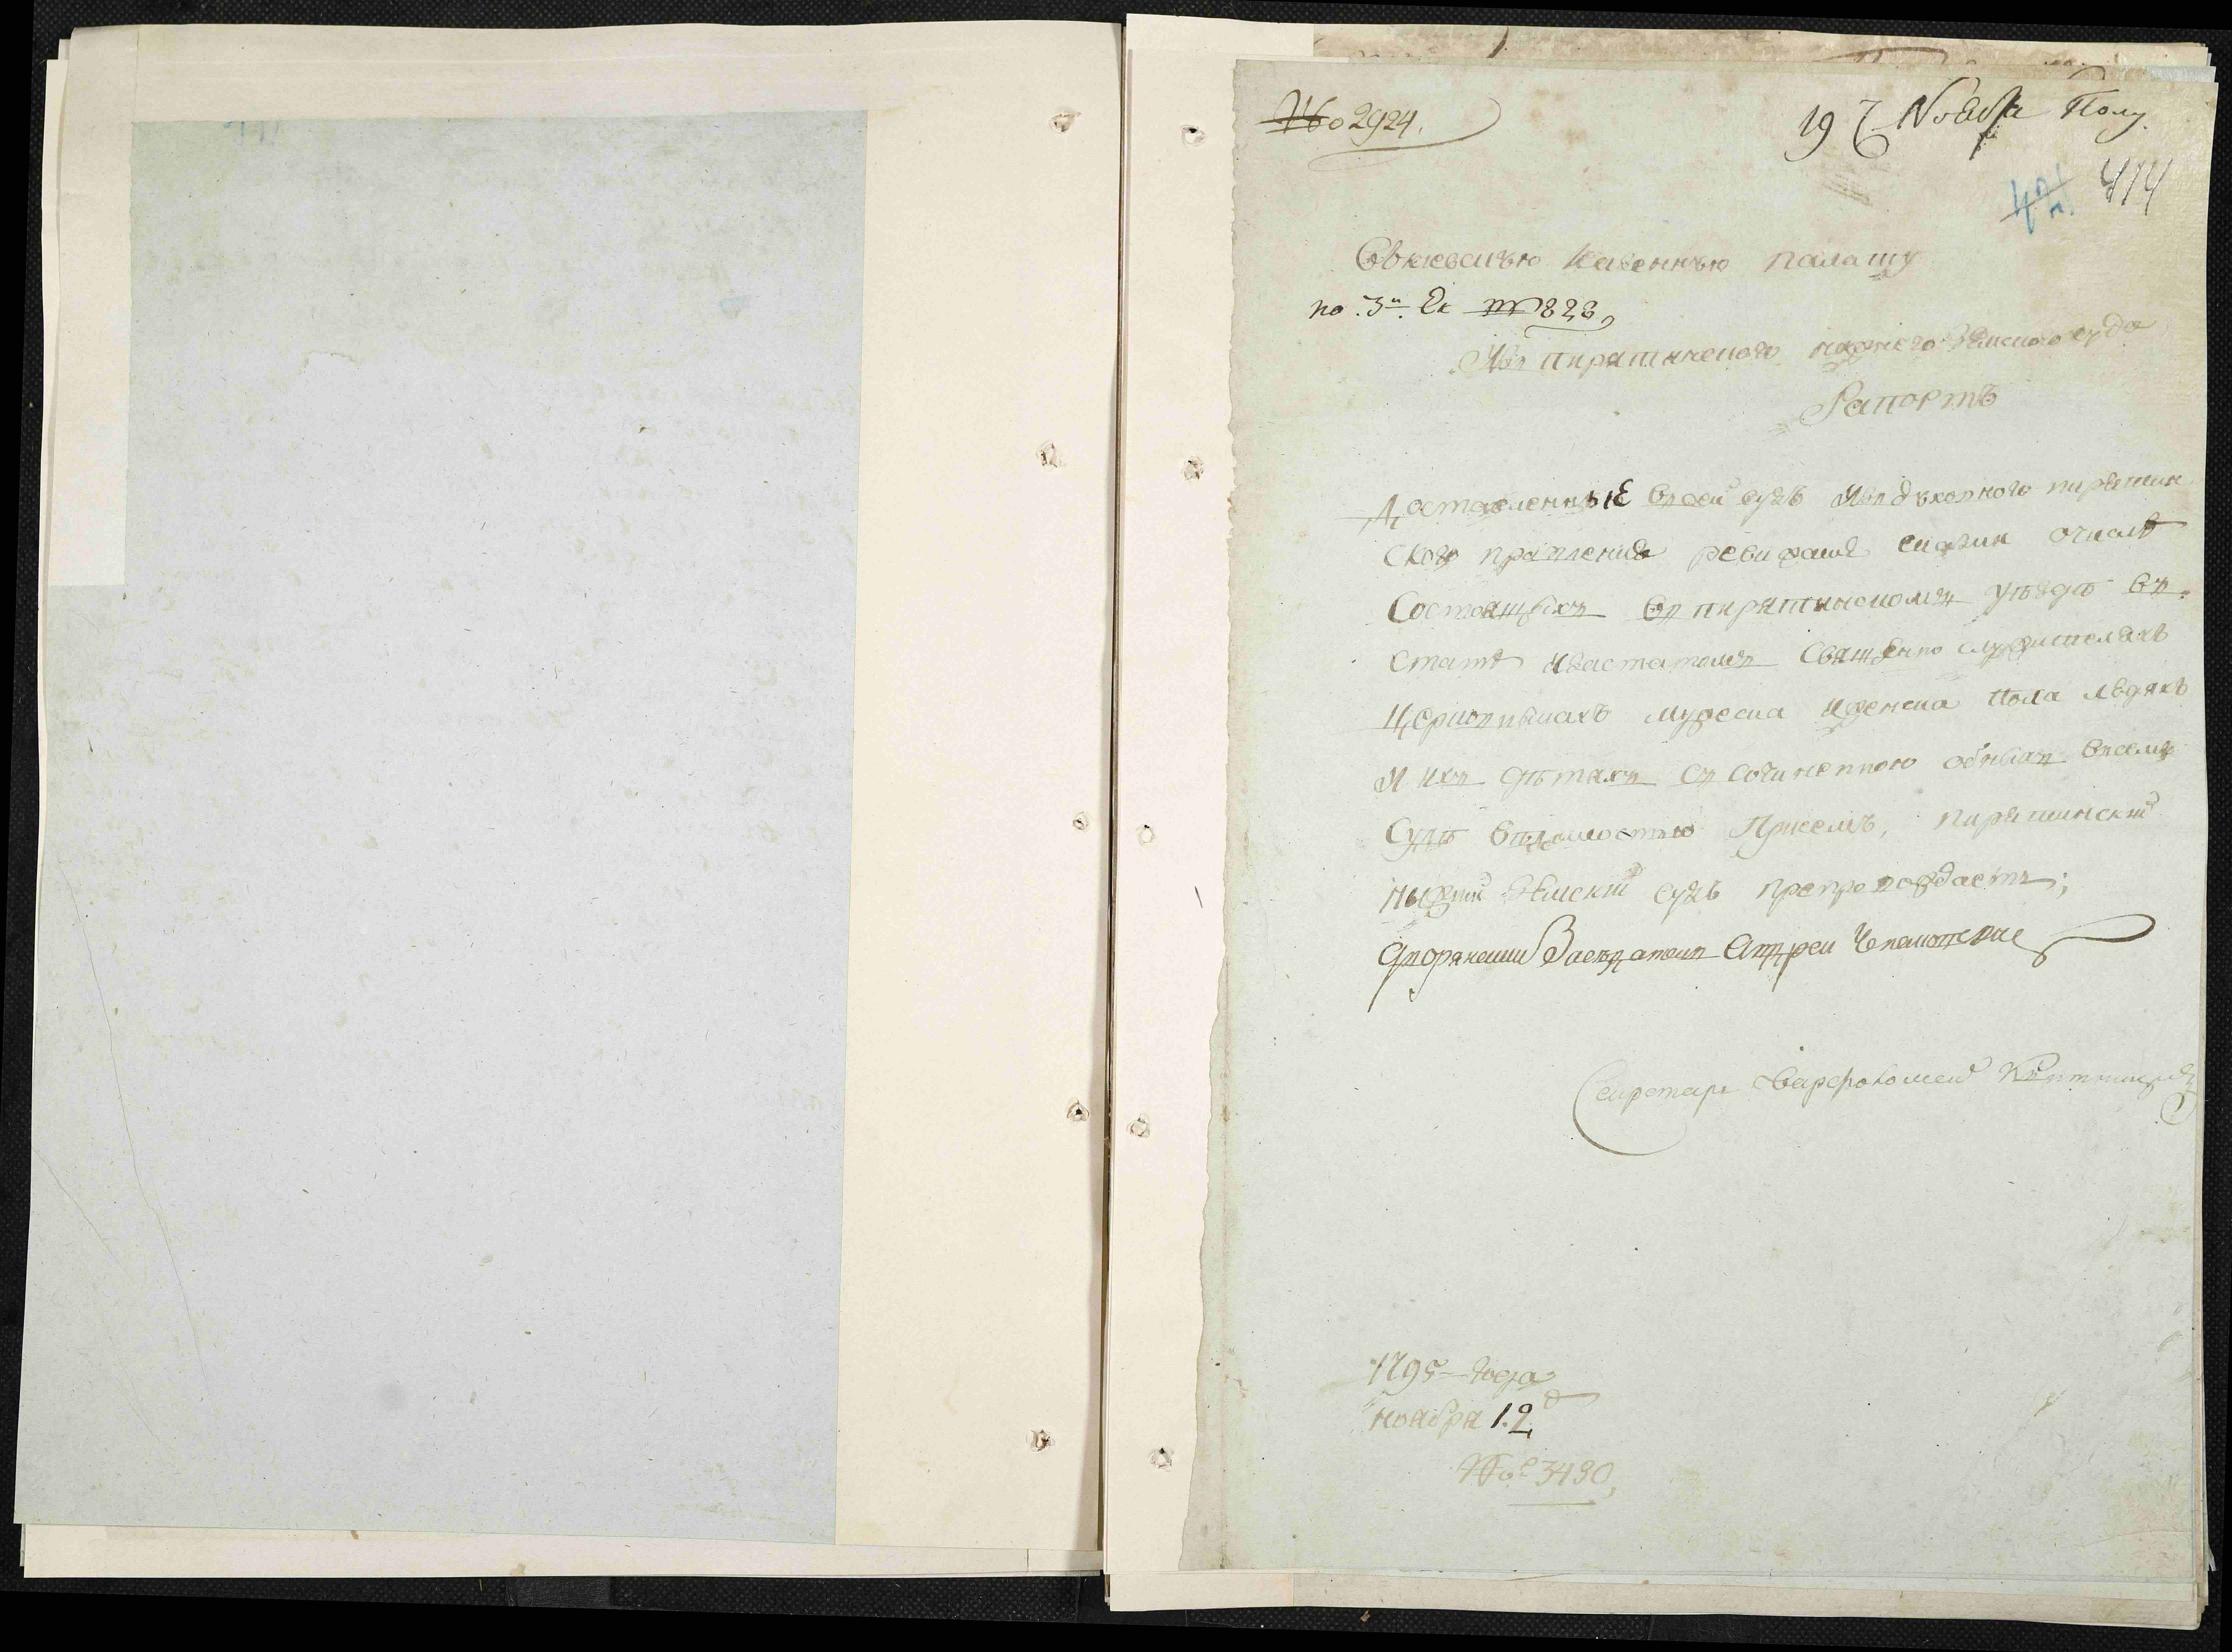 № 2924.
19 Ноября Полу.
414
Въ киевскую казенную палату
по 3й Эк № 828,
Изъ пирятинского нижнего земского суда
Рапортъ
Доставленные въ сей судъ Изъ духовного пирятин
ского правления ревизские сказки о числѣ
Состоящихъ въ пирятинскомъ уѣздѣ въ
статѣ и застатомъ священно служителяхъ
Церковникахъ мужеска и женска пола людяхъ
И ихъ дѣтяхъ съ сочиненною объ нихъ въ семъ
Судѣ вѣдомостью При семъ, пирятинский
нижний земский судъ препровождаетъ;
Дворянский Заседатель Андрей
Секретарь Варфоломей
1795 года
ноября 12 д
№ 3430,